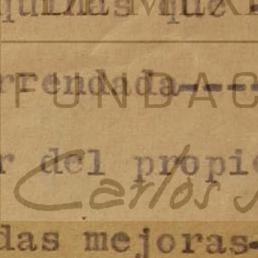 quinas que
rrendada----
FUNDAC
r del propie
Carlos
das mejoras-